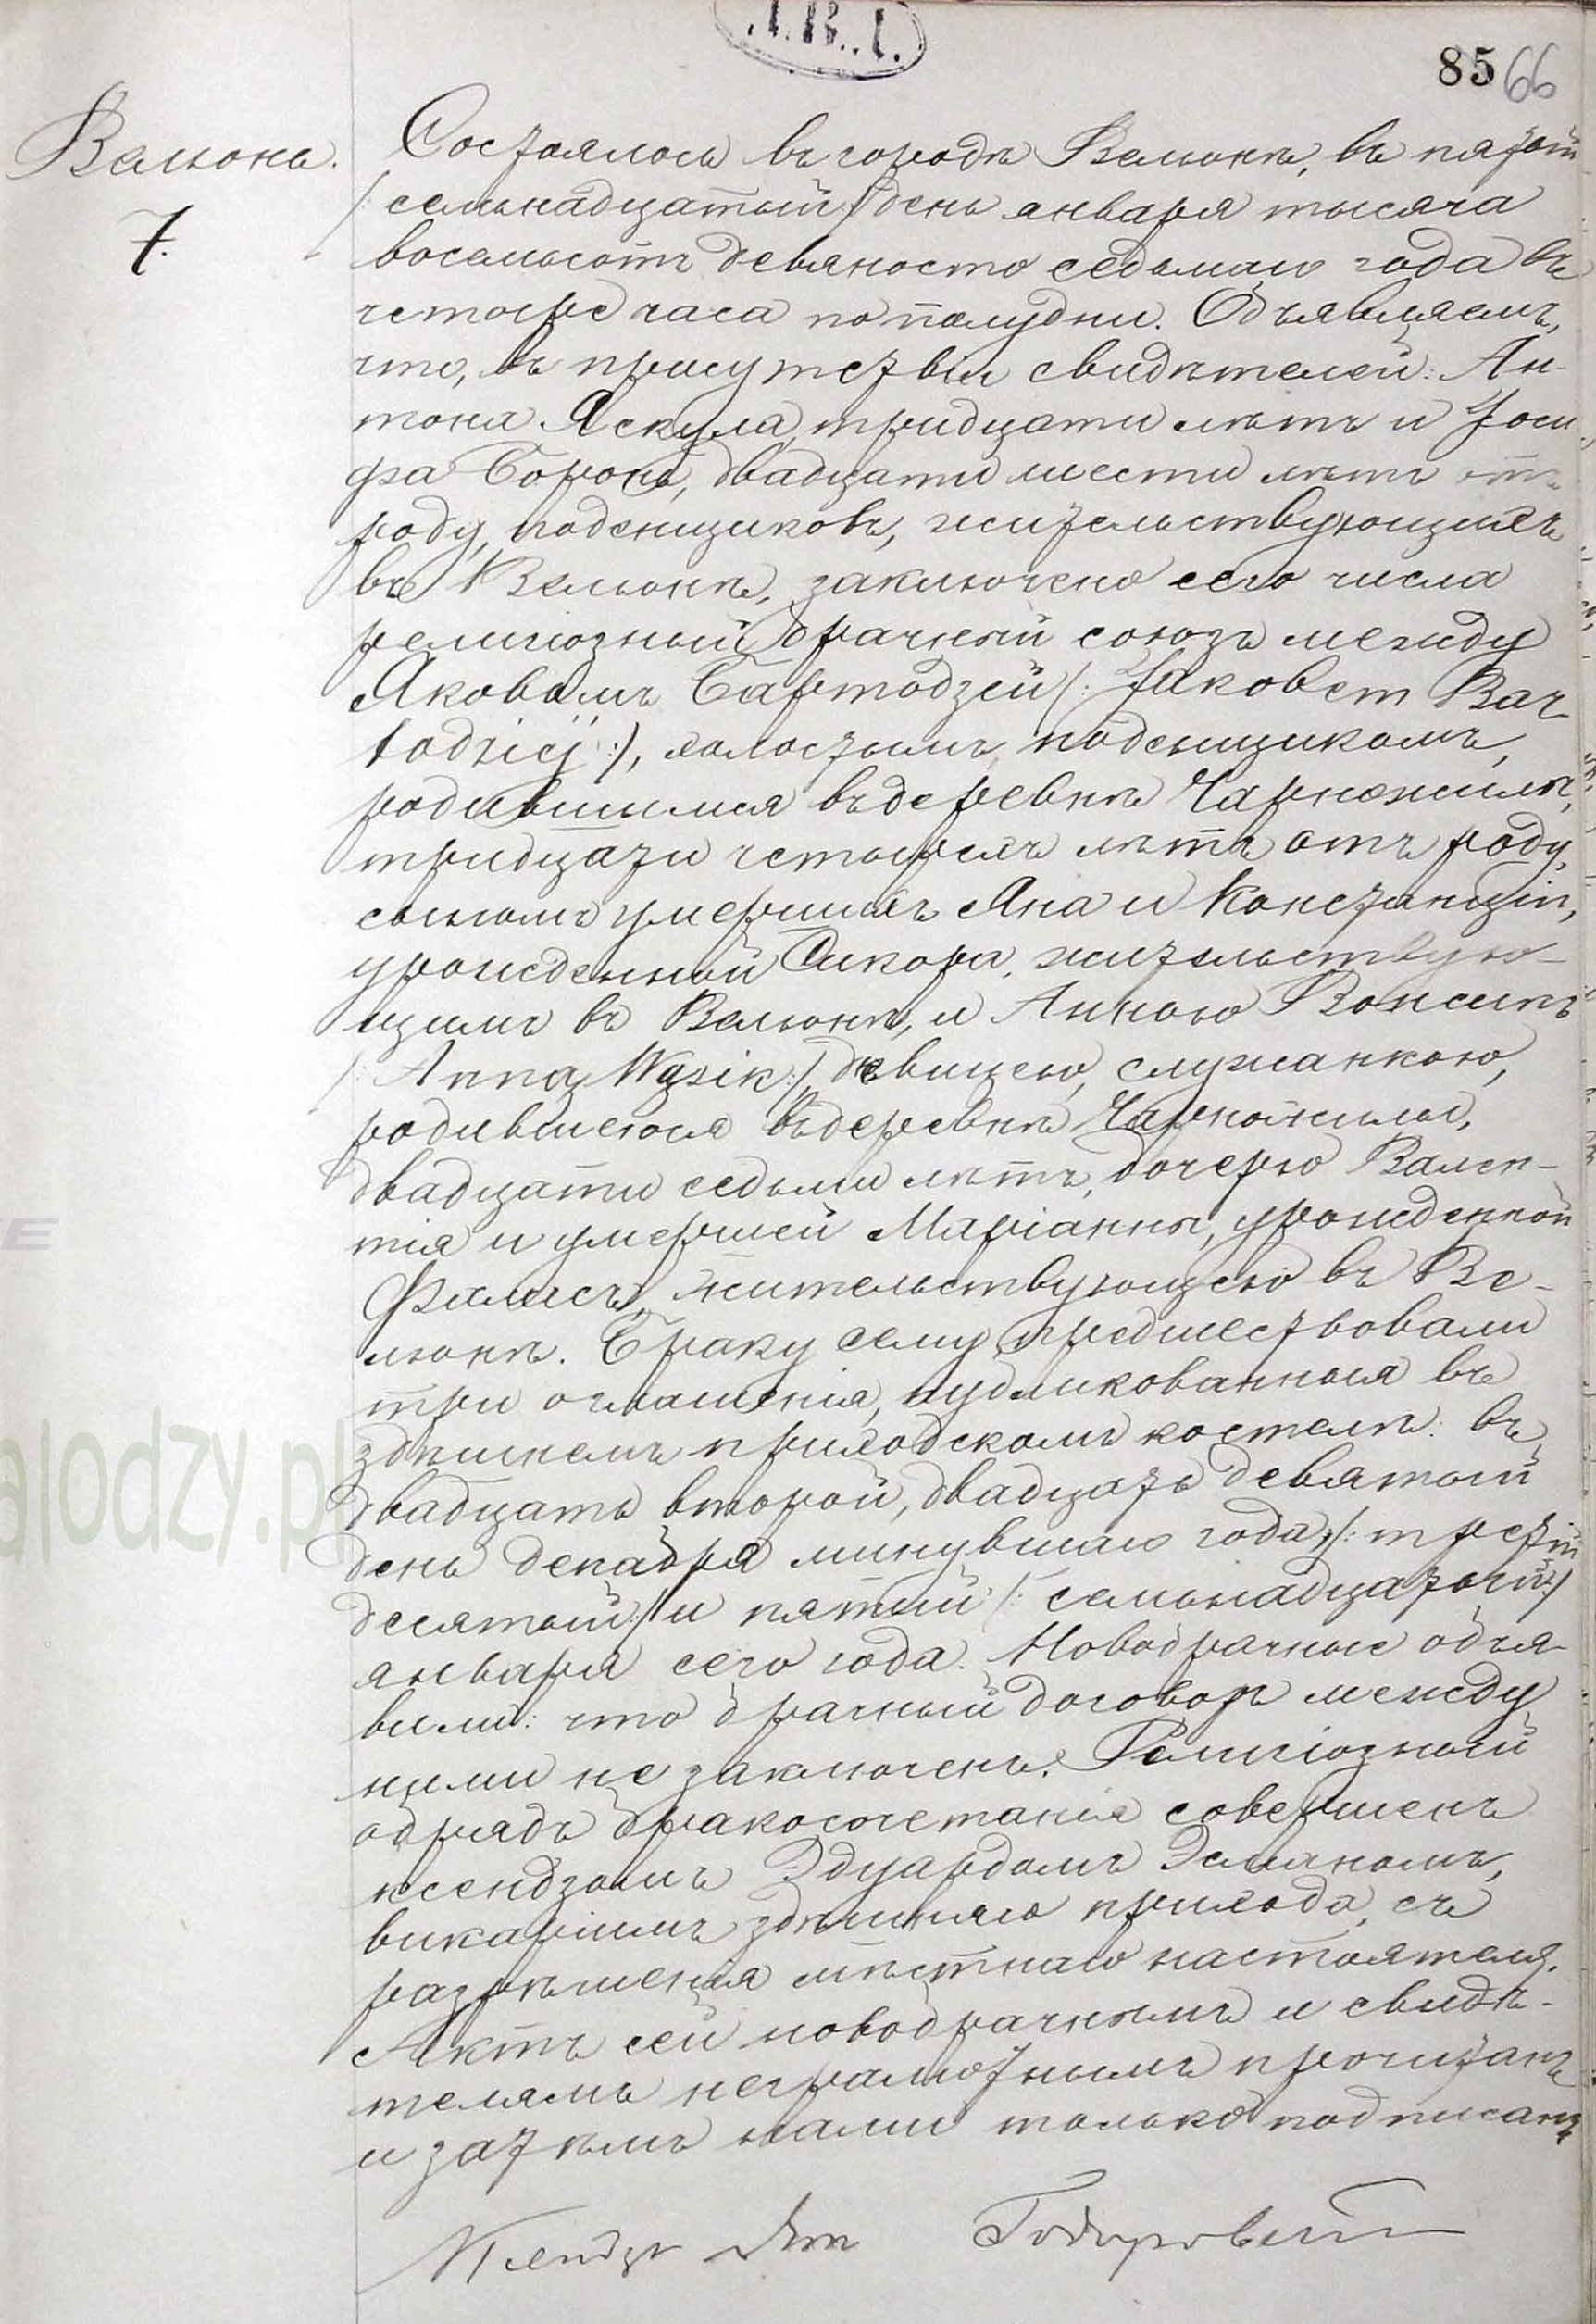 .1.В..1.
85 66
Велюнь.
7.
Состоялось въ городѣ Велюнѣ, въ пятый
/: семьнадцатый :/ день января тысяча
восемьсотъ девяносто седьмаго года въ
четыре часа по полудни. Объявляемъ,
что, въ присутствіи свидѣтелей: Ан-
тона Яскула, тридцати лѣтъ и Іоси-
фа Бороня, двадцати шести лѣтъ отъ
роду, поденщиковъ, жительствующихъ
въ Велюнѣ, заключенъ сего числа
религіозный брачный союзъ между
Яковомъ Бартодзей /: Jakobem Bar-
todziej :/, холостымъ, поденщикомъ,
родившимся въ деревнѣ Чарножилы,
тридцати четырехъ лѣтъ отъ роду,
сыномъ умершихъ Яна и Констанціи,
урожденной Сикора, жительствую-
щимъ въ Велюнѣ, и Анною Вонсикъ
/: Anną Wąsik :/, дѣвицею, служанкою,
родившеюся въ деревнѣ Чарножилы,
двадцати седьми лѣтъ, дочерью Вален-
тія и умершей Маріанны, урожденной
жительствующею въ Ве-
люнѣ. Браку сему предшествовали
три оглашенія, публикованныя въ
здѣшнемъ приходскомъ костелѣ: въ
двадцать второй, двадцать девятый
день декабря минувшаго года, /: третій
десятый :/ и пятый /: семьнадцатый :/
января сего года. Новобрачные объя-
вили: что брачный договоръ между
ними не заключенъ. Религіозный
обрядъ бракосочетанія совершенъ
ксендзомъ Эдуардомъ Эсманомъ,
викаріемъ здѣшняго прихода, съ
разрѣшенія мѣстнаго настоятеля.
Актъ сей новобрачнымъ и свидѣ-
телямъ неграмотнымъ прочитанъ
и затѣмъ нами только подписанъ
Ксендзъ
alodzy.pl